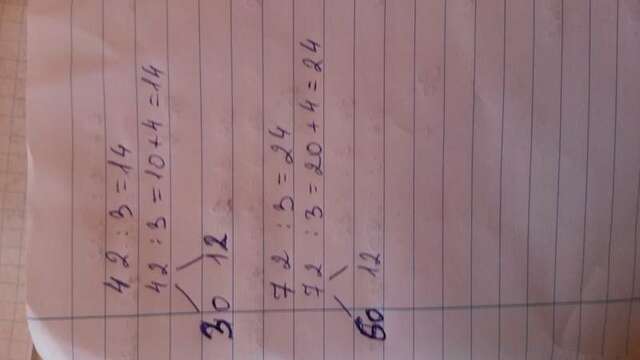 42 : 3 = 14
42 : 3 = 10 + 4 = 14
30 12
72 : 3 = 24
72 : 3 = 20 + 4 = 24
60 12